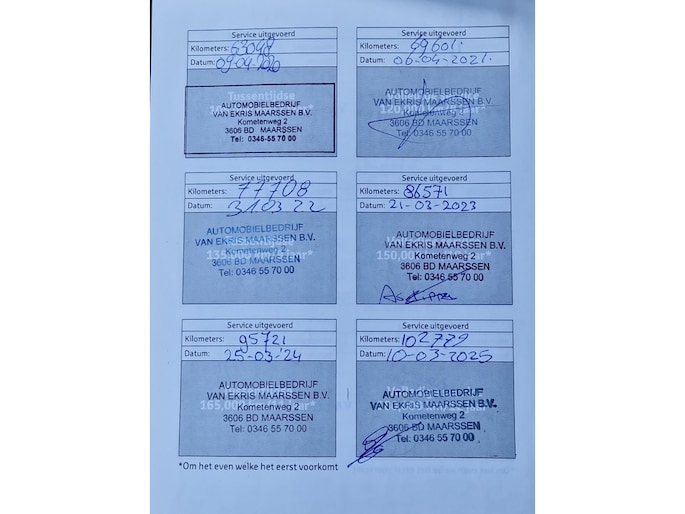 Service uitgevoerd
Kilometers: 63048
Datum: 09-04-2020
Tussentijdse
AUTOMOBIELBEDRIJF
VAN EKRIS MAARSSEN B.V.
Kometenweg 2
3606 BD MAARSSEN
Tel: 0346-55 70 00
Service uitgevoerd
Kilometers: 69601
Datum: 06-04-2021
120,000
AUTOMOBIELBEDRIJF
VAN EKRIS MAARSSEN B.V.
Kometenweg 2
3606 BD MAARSSEN
Tel: 0346 55 70 00
Service uitgevoerd
Kilometers: 77708
Datum: 310322
135,000
AUTOMOBIELBEDRIJF
VAN EKRIS MAARSSEN B.V.
Kometenweg 2
3606 BD MAARSSEN
Tel: 0346 55 70 00
Service uitgevoerd
Kilometers: 86571
Datum: 21-03-2023
150,000
AUTOMOBIELBEDRIJF
VAN EKRIS MAARSSEN B.V.
Kometenweg 2
3606 BD MAARSSEN
Tel: 0346 55 70 00
Service uitgevoerd
Kilometers: 95721
Datum: 25-03-'24
165,000
AUTOMOBIELBEDRIJF
VAN EKRIS MAARSSEN B.V.
Kometenweg 2
3606 BD MAARSSEN
Tel: 0346 55 70 00
Service uitgevoerd
Kilometers: 102779
Datum: 10-03-2025
AUTOMOBIELBEDRIJF
VAN EKRIS MAARSSEN B.V.
Kometenweg 2
3606 BD MAARSSEN
Tel: 0346 55 70 00
*Om het even welke het eerst voorkomt